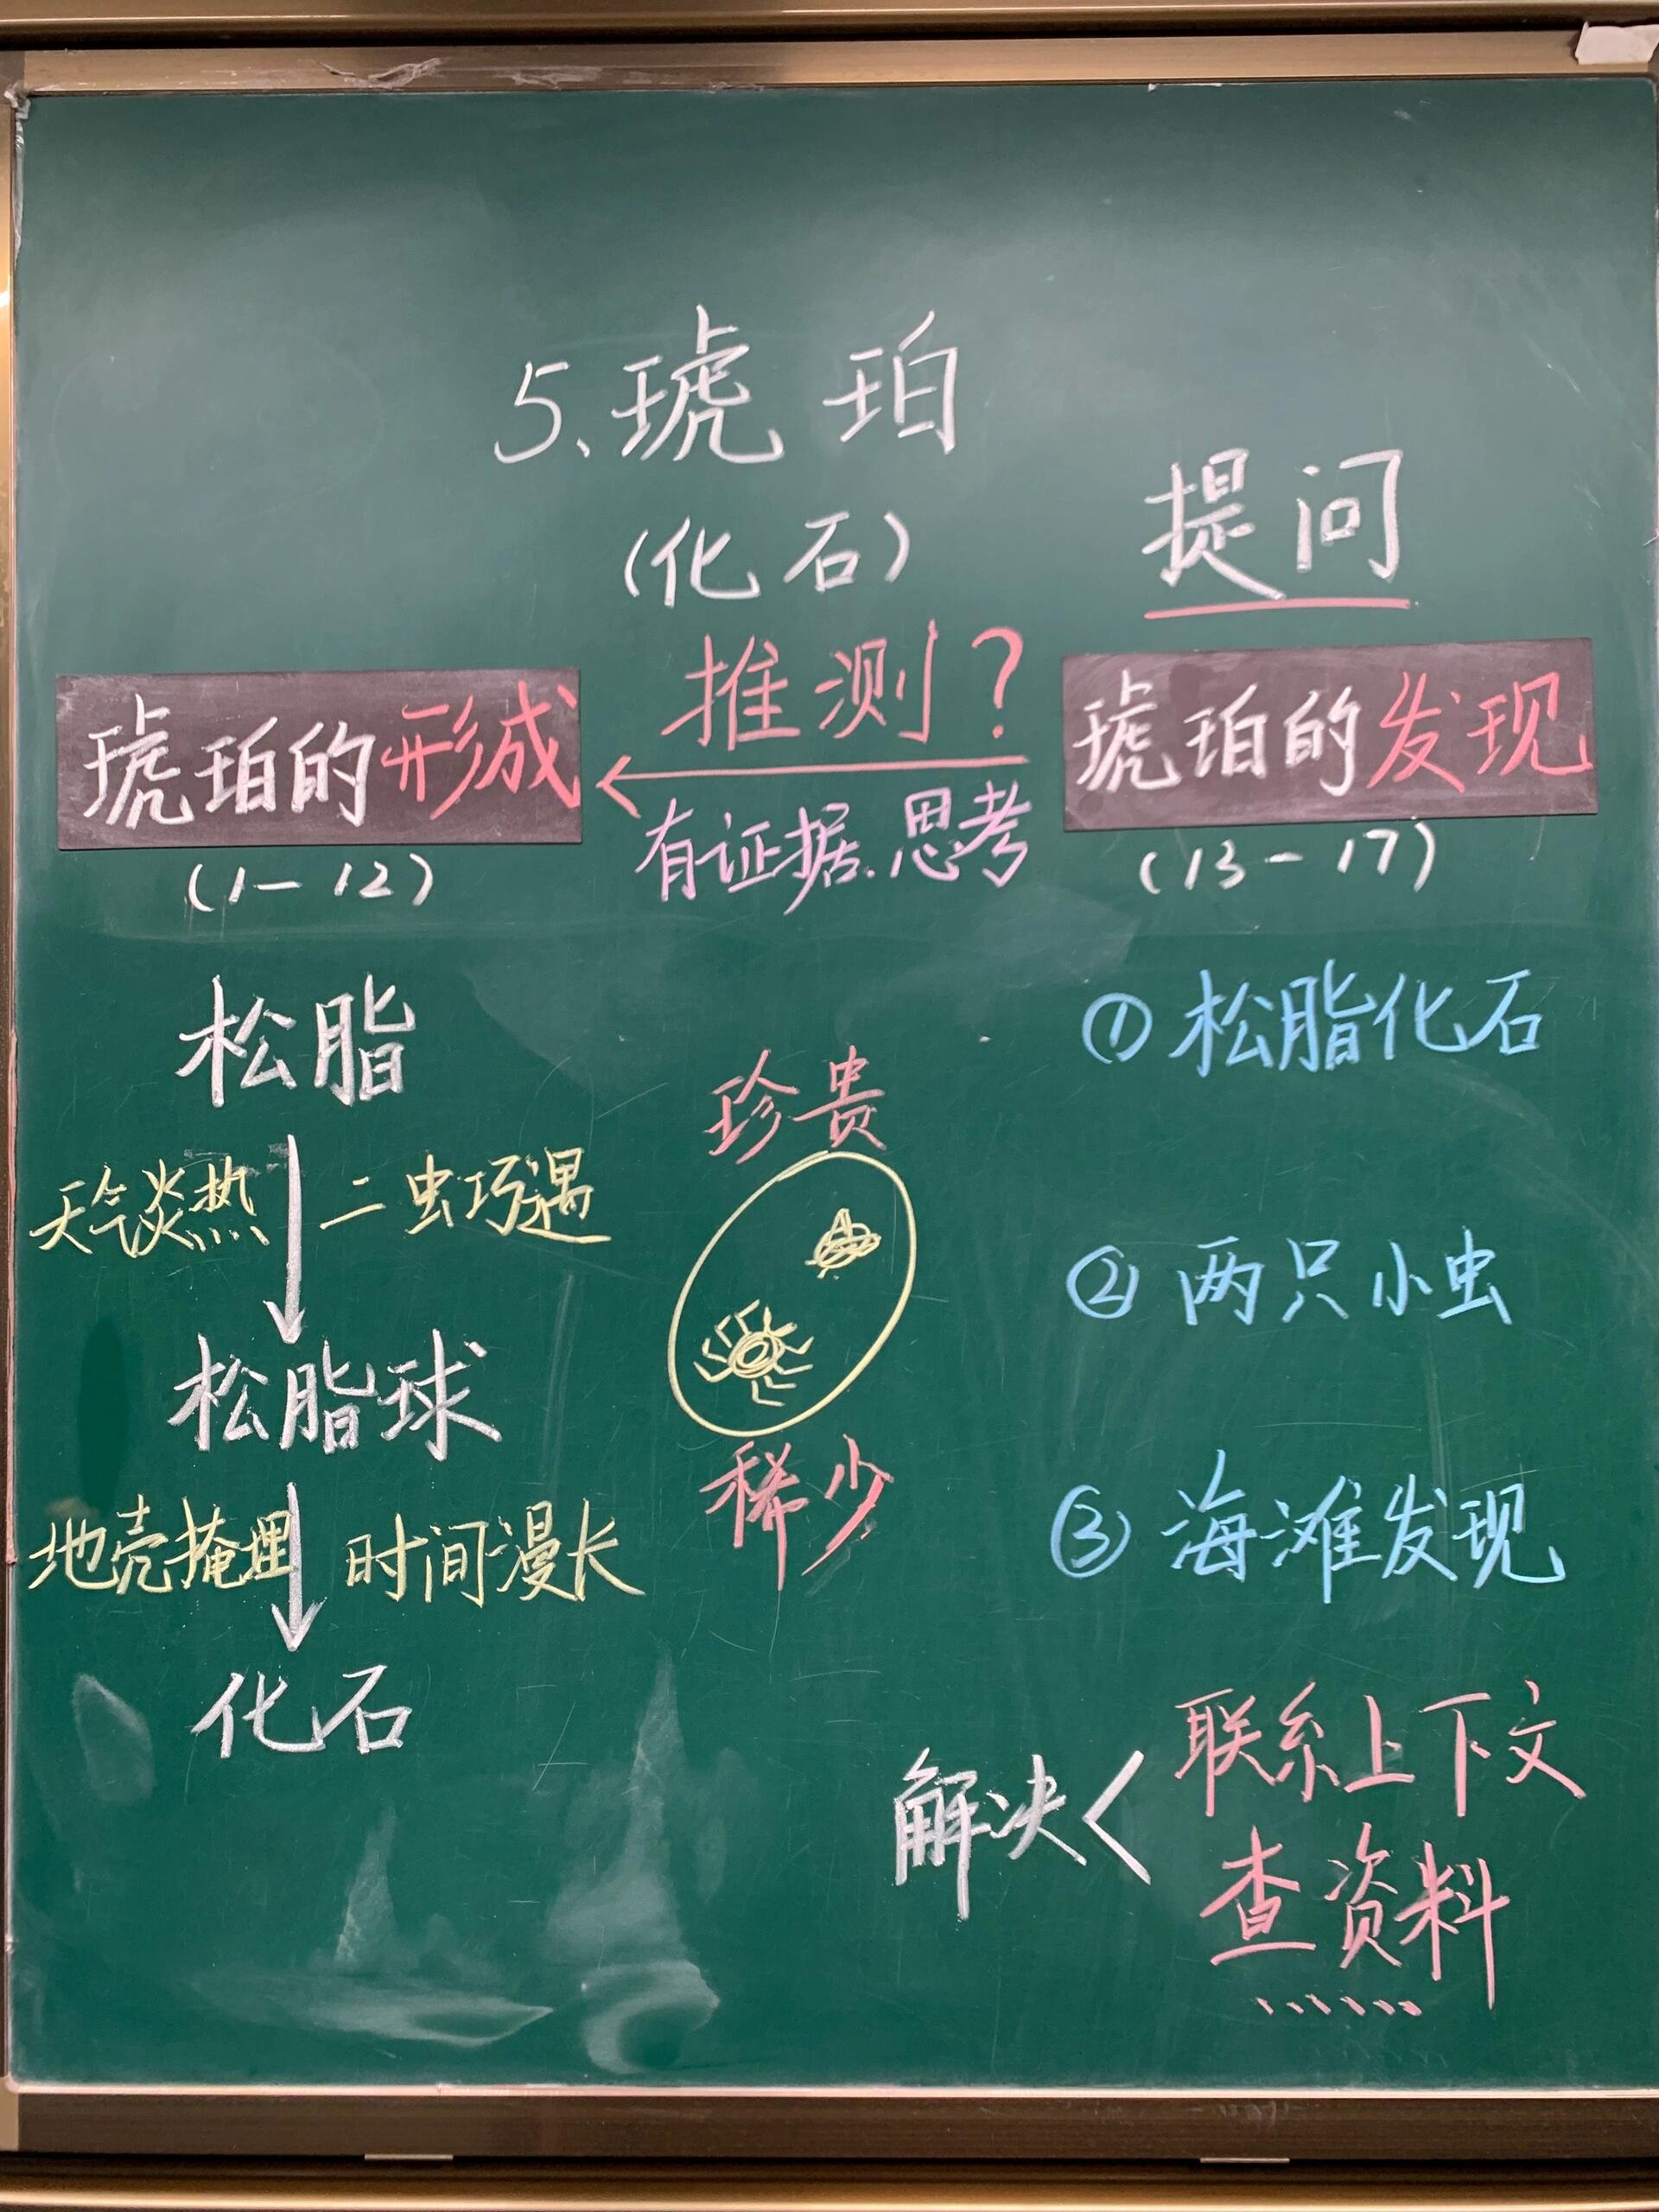 5、琥珀
(化石)
提问
琥珀的形成
推测?
琥珀的发现
(1-12)
有证据、思考
(13-17)
松脂
天气炎热
二虫巧遇
松脂球
地壳掩埋
时间漫长
化石
珍贵
稀少
①松脂化石
②两只小虫
③海滩发现
解决
联系上下文
查资料